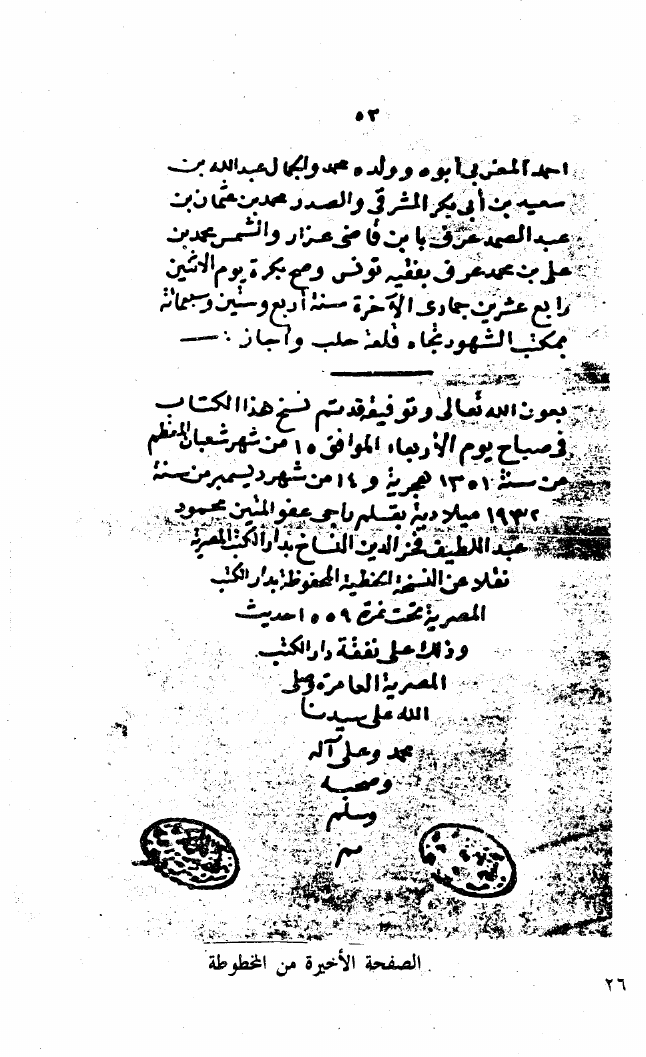 ٥٣
احمد المغربي أبوه وولده محمد والجمال عبدالله بن
سعيد بن أبي بكر المشرقي والصدر محمد بن عثمان بن
عبد الصمد عرف بابن قاضي عزاز والشمس محمد بن
علي بن محمد عرف بفقيه تونس وصح بكرة يوم الاثنين
رابع عشرين جمادى الآخرة سنة أربع وستين وسبعمائة
بمكتب الشهود تجاه قلعة حلب وأجاز
بعون الله تعالى وتوفيقه قد تم نسخ هذا الكتاب
في صباح يوم الأربعاء الموافق ١٥ من شهر شعبان المعظم
من سنة ١٣٥١ هجرية و ١٤ من شهر ديسمبر من سنة
١٩٣٢ ميلادية بقلم راجي عفو المتين محمود
عبد اللطيف فخر الدين النساخ بدار الكتب المصرية
نقلا عن النسخة الخطية المحفوظة بدار الكتب
المصرية تحت نمرة ١٥٥٩ حديث
وذلك على نفقة دار الكتب
المصرية العامرة وصلى
الله على سيدنا
محمد وعلى آله
وصحبه
وسلم
م
الصفحة الأخيرة من المخطوطة
٢٦